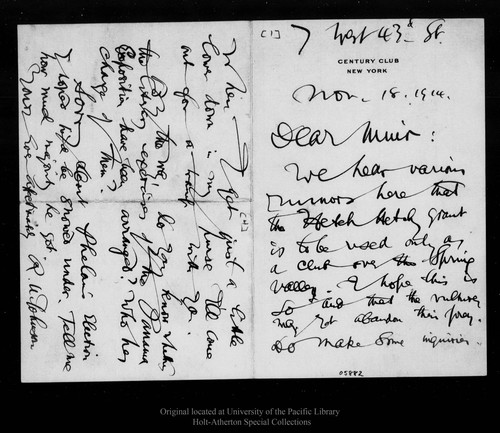 [1]
7 West 43d St.
CENTURY CLUB
NEW YORK
Nov. 18. 1914.
Dear Muir:
We hear various
rumors here that
the Hetch Hetchy grant
is to be used only as
a club over the Spring
Valley. I hope this is
so and that the
may not abandon their prey.
Do make some inquiries.
05882
[2]
When I get just a little
more down in my purse I'll come
out for a talk with you.
By the way, do you know whether
the literary exercises of the Panama
Exposition have been arranged? Who has
charge of them?
Sorry about Phelan's Election
I hoped he'd be snowed under. Tell me
how much majority he got.
Yours affectionately
R. U. Johnson
Original located at University of the Pacific Library
Holt-Atherton Special Collections